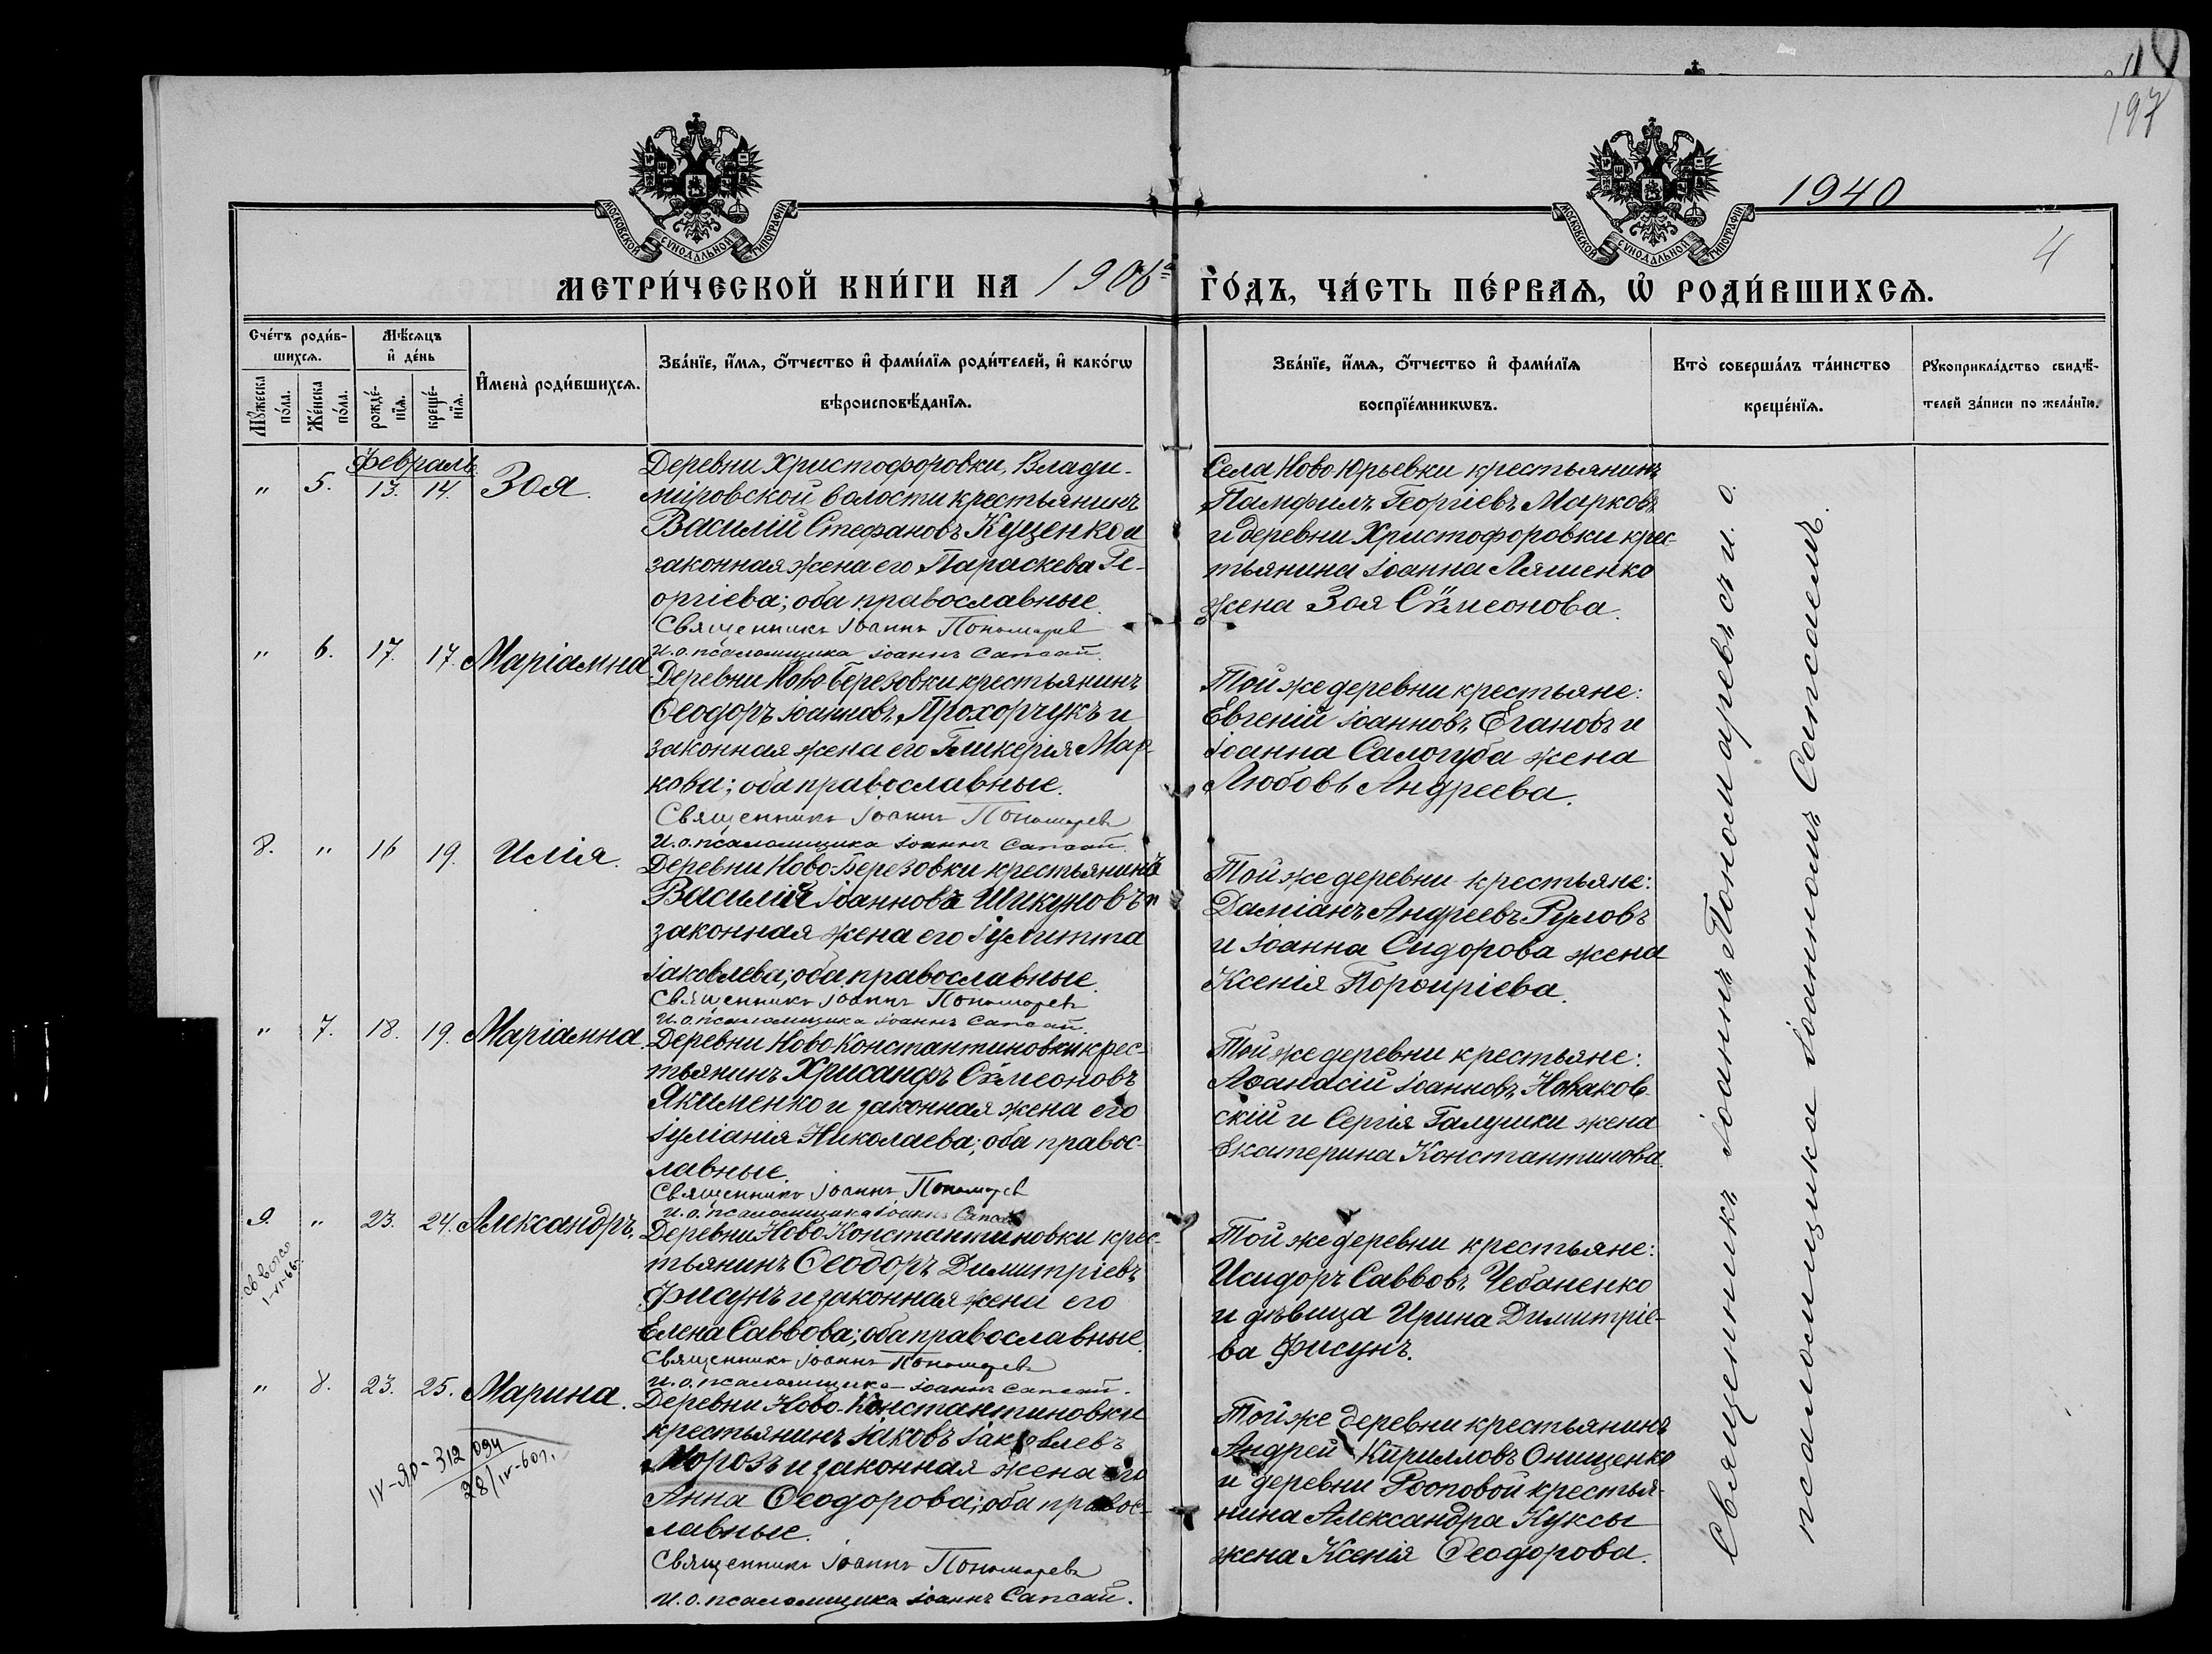 197
1940
4
МОСКОВСКОЙ СѴНОДАЛЬНОЙ ТИПОГРАФІИ
МОСКОВСКОЙ СѴНОДАЛЬНОЙ ТИПОГРАФІИ
МЕТРИ́ЧЕСКОЙ КНИ́ГИ НА 1906й ГО́ДЪ, ЧА́СТЬ ПЕ́РВАѦ, Ѡ҆ РОДИ́ВШИХСѦ.
Сче́тъ роди́в-
шихсѧ.
Мꙋ́жеска по́ла.
Же́нска по́ла.
Мѣ́сѧцъ
и҆ де́нь
рожде́-нїѧ.
креще́-нїѧ.
И҆мена̀ роди́вшихсѧ.
Зва́нїе, и҆́мѧ, ѻ҆́тчество и҆ фами́лїѧ роди́телей, и҆ како́гѡ
вѣроисповѣ́данїѧ.
Зва́нїе, и҆́мѧ, ѻ҆́тчество и҆ фами́лїѧ
воспрїе́мникѡвъ.
Кто̀ соверша́лъ та́инство
креще́нїѧ.
Рꙋкоприкла́дство свидѣ́-
телей за́писи по жела́нїю.
Февраль
" 5. 13. 14. Зоя.
Деревни Христофоровки, Влади-
міровской волости крестьянинъ
Василій Стефановъ Куценко и
законная жена его Параскева Ге-
оргіева; оба православные.
Священникъ Іоаннъ Пономарев
И.о. псаломщика Іоаннъ Сапсай.
Села Ново Юрьевки крестьянинъ
Памфилъ Георгіевъ Марковъ
и деревни Христофоровки крес-
тьянина Іоанна Ляшенко
жена Зоя Сѵмеонова.
" 6. 17. 17. Маріамна
Деревни Ново Березовки крестьянинъ
Ѳеодоръ Іоанновъ Прохорчукъ и
законная жена его Гликерія Мар-
кова; оба православные.
Священникъ Іоаннъ Пономаревъ
И.о. псаломщика Іоаннъ Сапсай.
Той же деревни крестьяне:
Евгеній Іоанновъ Егановъ и
Іоанна Салогуба жена
Любовь Андреева.
8. " 16 19. Илія.
Деревни Ново-Березовки крестьянинъ
Василій Іоанновъ Шикуновъ и
законная жена его Іулитта
Іаковлева; оба православные.
Священникъ Іоаннъ Пономаревъ
И.о. псаломщика Іоаннъ Сапсай.
Той же деревни крестьяне:
Даміанъ Андреевъ Руловъ
и Іоанна Сидорова жена
Ксенія Порфиріева.
" 7. 18. 19. Маріамна.
Деревни Ново-Константиновки крес-
тьянинъ Хрисанфъ Сѵмеоновъ
Якименко и законная жена его
Іуліанія Николаева; оба правос-
лавные.
Священникъ Іоаннъ Пономарев
И.о. псаломщика Іоаннъ Сапсай
Той же деревни крестьяне:
Аѳанасій Іоанновъ Новаков-
скій и Сергія Галушки жена
Екатерина Константинова.
9. " 23. 24. Александръ.
1-VI-66.
Деревни Ново-Константиновки крес-
тьянинъ Ѳеодоръ Димитріевъ
Фисунъ и законная жена его
Елена Саввова; оба православные.
Священникъ Іоаннъ Пономаревъ
И.о. псаломщика Іоаннъ Сапсай.
Той же деревни крестьяне:
Исидоръ Саввовъ Чебаненко
и дѣвица Ирина Димитріе-
ва Фисунъ.
" 8. 23. 25. Марина.
IV-ЯР-312094
28/IV-60г.
Деревни Ново-Константиновки
крестьянинъ Іаковъ Іаковлевъ
Морозъ и законная жена его
Анна Ѳеодорова; оба правос-
лавные.
Священникъ Іоаннъ Пономаревъ
И.о. псаломщика Іоаннъ Сапсай.
Той же деревни крестьянинъ
Андрей Кирилловъ Онищенко
и деревни Рооповой крестья-
нина Александра Куксы
жена Ксенія Ѳеодорова.
Священникъ Іоаннъ Пономаревъ съ и. о.
псаломщика Іоанномъ Сапсаемъ.